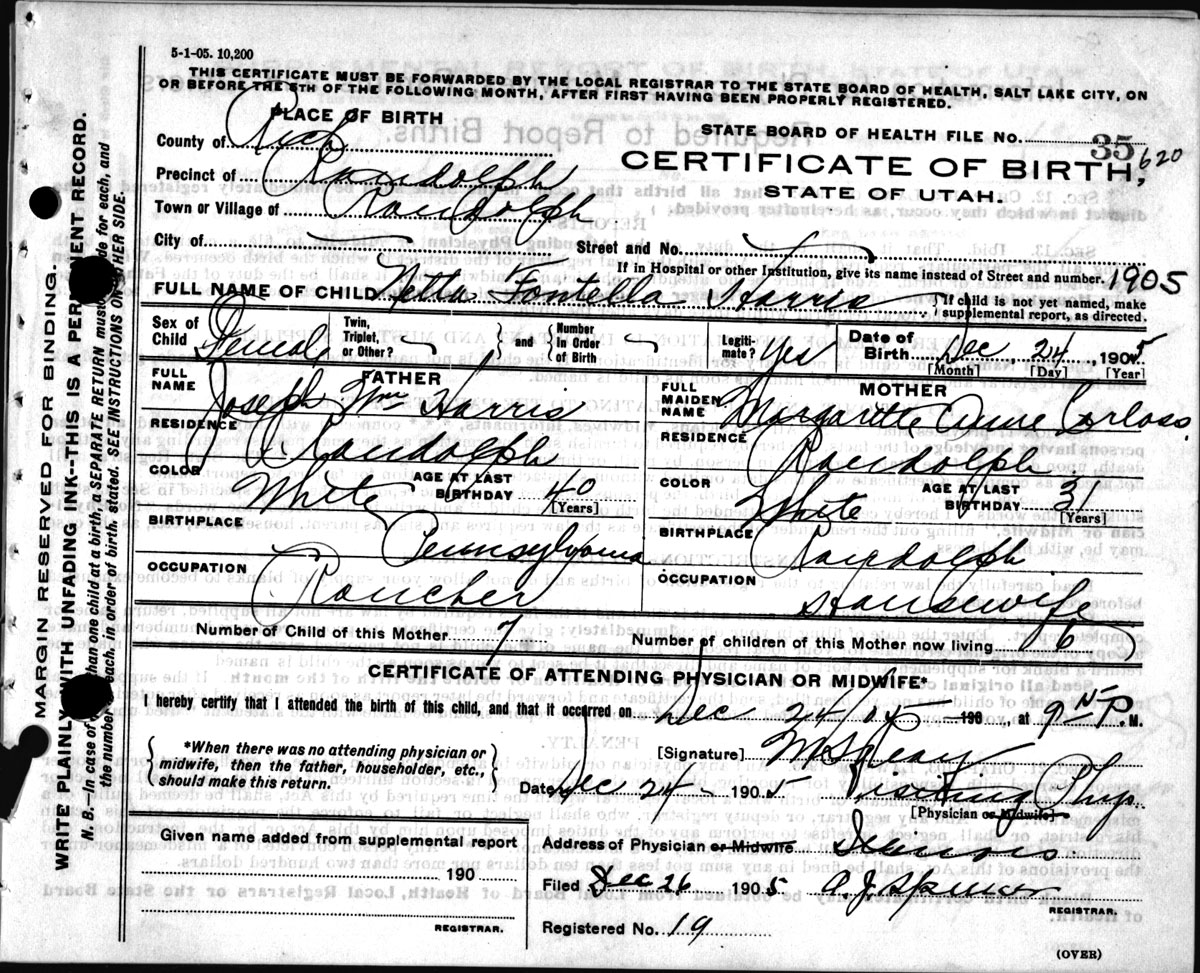 5-1-05. 10,200
THIS CERTIFICATE MUST BE FORWARDED BY THE LOCAL REGISTRAR TO THE STATE BOARD OF HEALTH, SALT LAKE CITY, ON
OR BEFORE THE 5TH OF THE FOLLOWING MONTH, AFTER FIRST HAVING BEEN PROPERLY REGISTERED.
PLACE OF BIRTH
STATE BOARD OF HEALTH FILE No. 35 620
County of Rich
CERTIFICATE OF BIRTH,
Precinct of Randolph
STATE OF UTAH.
Town or Village of Randolph
City of Street and No.
If in Hospital or other Institution, give its name instead of Street and number. 1905
FULL NAME OF CHILD Netta Fontella Harris { If child is not yet named, make supplemental report, as directed.
Sex of Child Female Twin, Triplet, or Other? } and { Number In Order of Birth Legiti- mate? Yes Date of Birth Dec, 24, 1905
[Month] [Day] [Year]
FATHER
MOTHER
FULL NAME Joseph Wm Harris
FULL MAIDEN NAME Margarette Anne
RESIDENCE Randolph
RESIDENCE Randolph
COLOR White AGE AT LAST BIRTHDAY 40 [Years]
COLOR White AGE AT LAST BIRTHDAY 31 [Years]
BIRTHPLACE Pennsylvania
BIRTHPLACE Randolph
OCCUPATION Rancher
OCCUPATION Housewife
Number of Child of this Mother 7 Number of children of this Mother now living 6
CERTIFICATE OF ATTENDING PHYSICIAN OR MIDWIFE*
I hereby certify that I attended the birth of this child, and that it occurred on Dec 24/05 190 , at 9 P. M.
{ *When there was no attending physician or midwife, then the father, householder, etc., should make this return. }
[Signature]
Date Dec 24 1905 Visiting Phys
[Physician or Midwife]
Given name added from supplemental report
Address of Physician or Midwife
190
Filed Dec 26 1905 A. J. Spencer
REGISTRAR.
REGISTRAR.
Registered No. 19
(OVER)
MARGIN RESERVED FOR BINDING.
WRITE PLAINLY WITH UNFADING INK--THIS IS A PERMANENT RECORD.
N. B.--In case of than one child at a birth, a SEPARATE RETURN must made for each, and
the number each, in order of birth, stated. SEE INSTRUCTIONS ON OTHER SIDE.